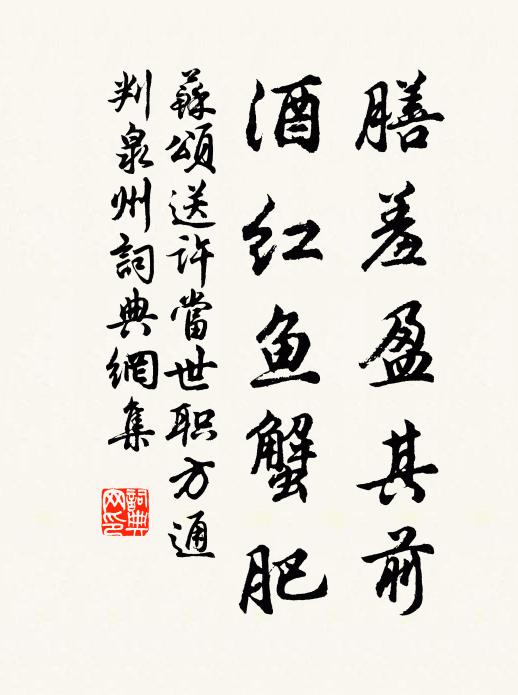 膳羞盈其前
酒红鱼蟹肥
蘇頌送许當世职方通
判泉州詞典網集
詞典网印